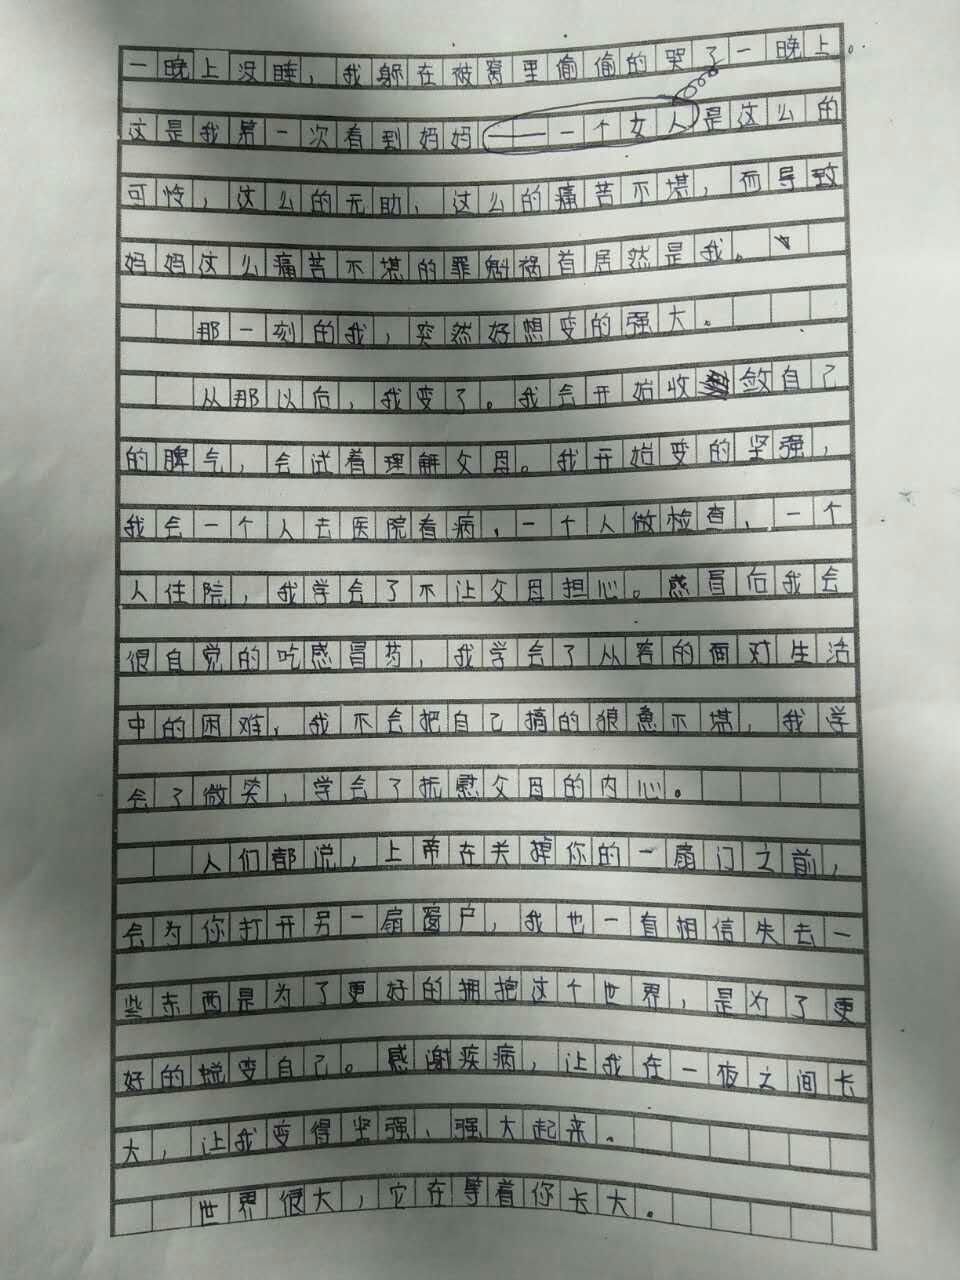 一晚上没睡，我躲在被窝里偷偷的哭了一晚上。
这是我第一次看到妈妈——一个女人是这么的
可怜，这么的无助，这么的痛苦不堪，而导致
妈妈这么痛苦不堪的罪魁祸首居然是我。
那一刻的我，突然好想变的强大。
从那以后，我变了。我会开始收敛自己
的脾气，会试着理解父母。我开始变的坚强，
我会一个人去医院看病，一个人做检查，一个
人住院，我学会了不让父母担心。感冒后我会
很自觉的吃感冒药，我学会了从容的面对生活
中的困难，我不会把自己搞的狼惫不堪，我学
会了微笑，学会了抚慰父母的内心。
人们都说，上帝在关掉你的一扇门之前，
会为你打开另一扇窗户，我也一直相信失去一
些东西是为了更好的拥抱这个世界，是为了更
好的蜕变自己。感谢疾病，让我在一夜之间长
大，让我变得坚强、强大起来。
世界很大，它在等着你长大。